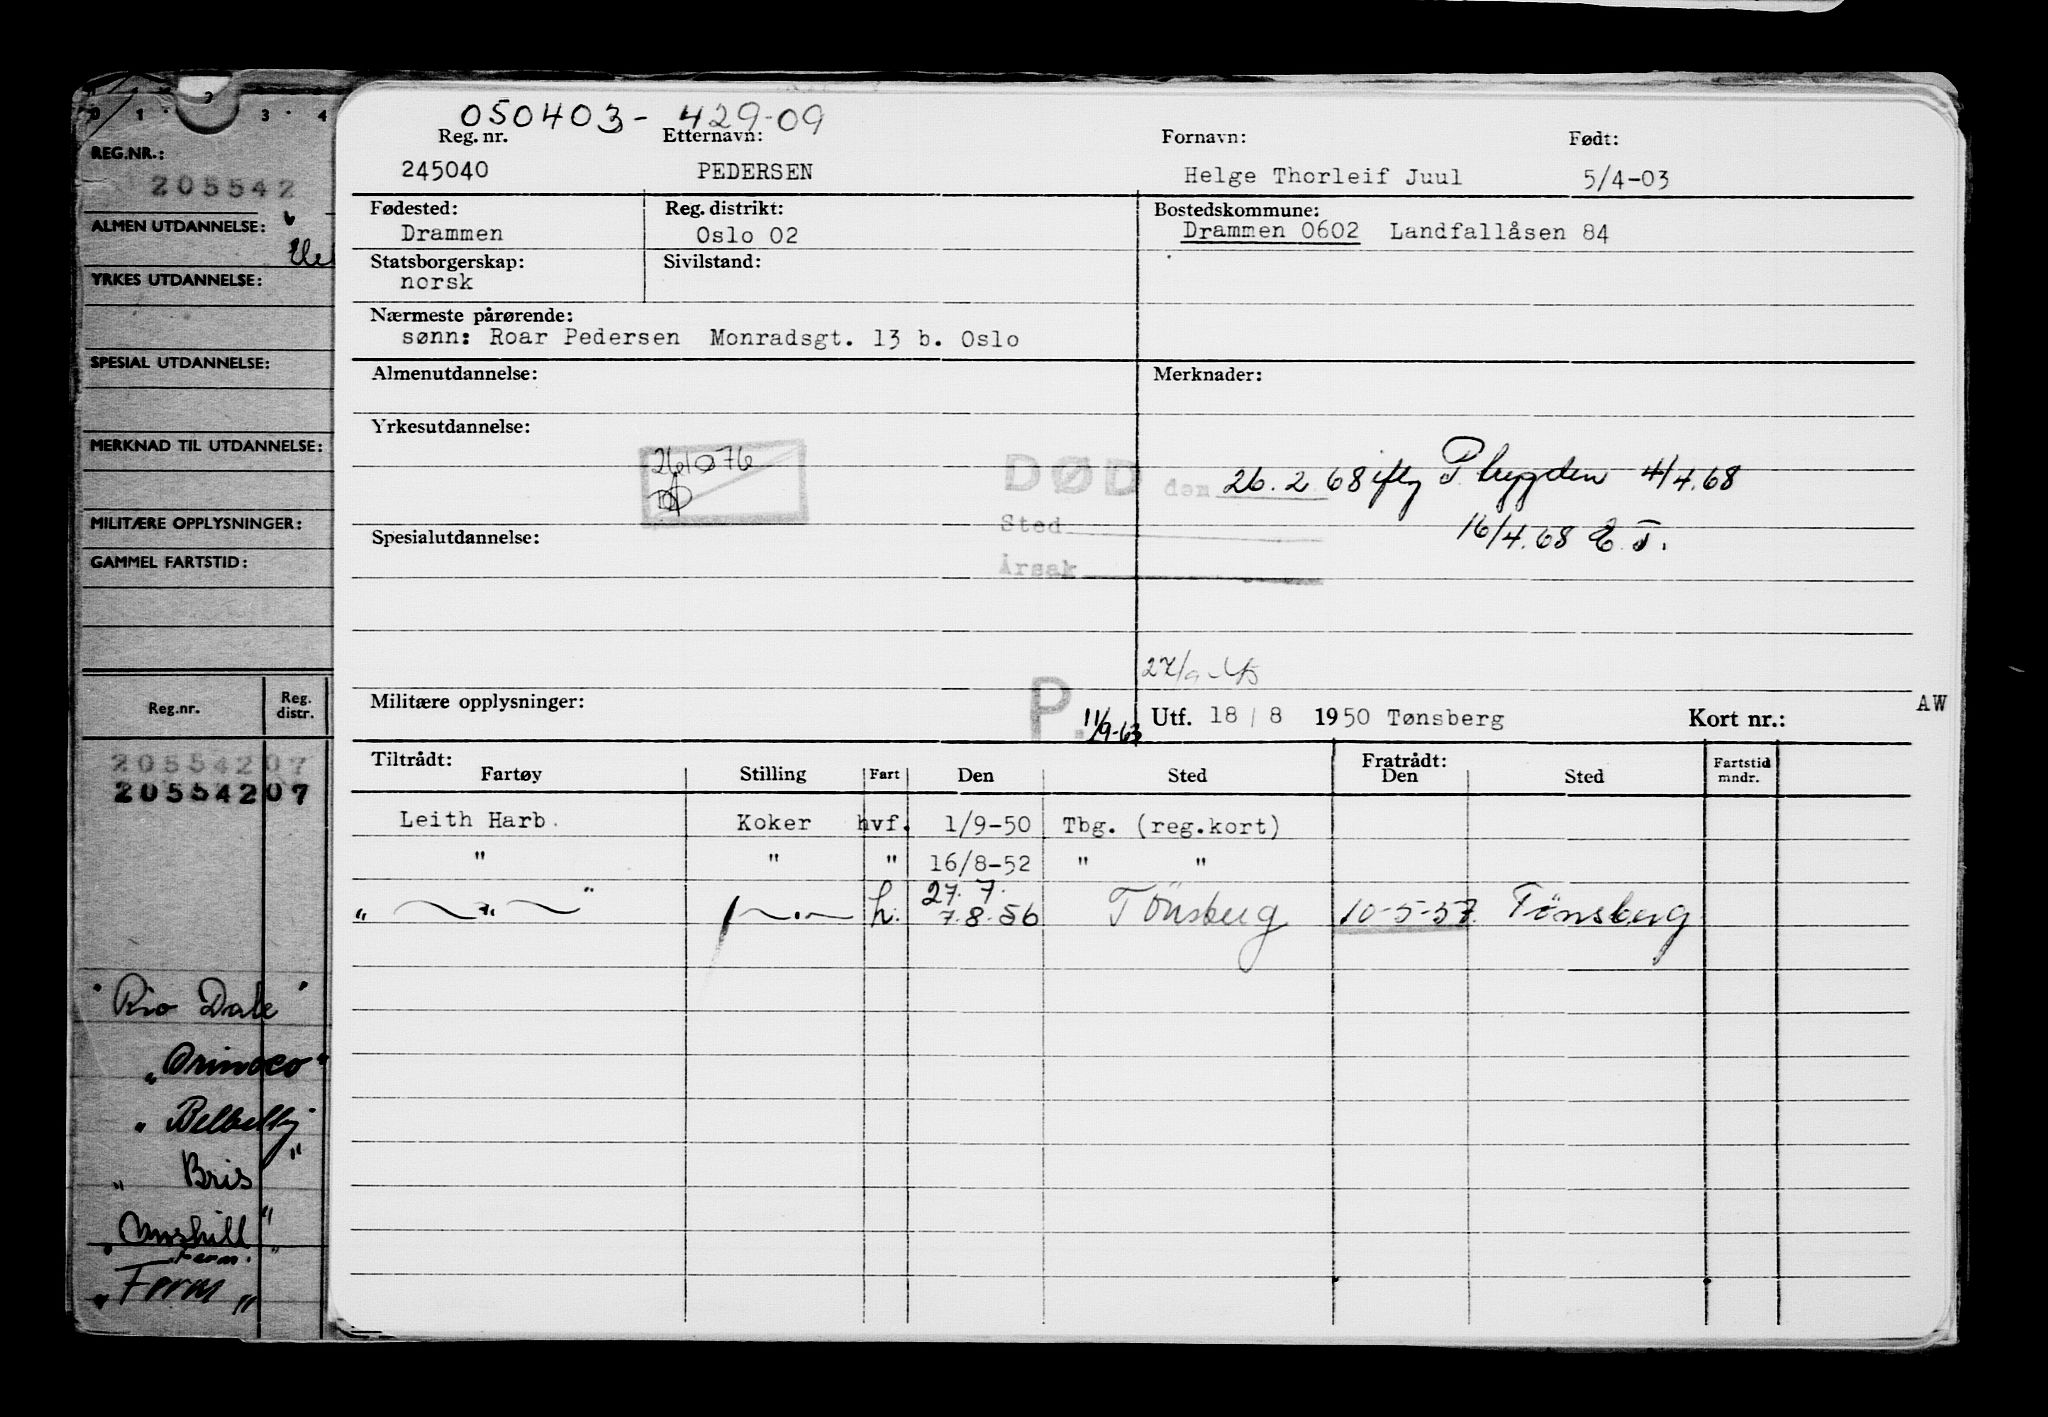 0 1 2 3 4
REG.NR.:
205542
ALMEN UTDANNELSE:
YRKES UTDANNELSE:
SPESIAL UTDANNELSE:
MERKNAD TIL UTDANNELSE:
MILITÆRE OPPLYSNINGER:
GAMMEL FARTSTID:
Reg.nr. Reg. distr.
20554207
20554207
"Rio Dale"
"Orinoco"
"Belbetty"
"Bris"
Ferm.
"Ferm"
050403- 429-09
Reg. nr. Etternavn: Fornavn: Født:
245040 PEDERSEN Helge Thorleif Juul 5/4-03
Fødested: Reg. distrikt: Bostedskommune:
Drammen Oslo 02 Drammen 0602 Landfallåsen 84
Statsborgerskap: Sivilstand:
norsk
Nærmeste pårørende:
sønn: Roar Pedersen Monradsgt. 13 b. Oslo
Almenutdannelse: Merknader:
Yrkesutdannelse:
261076
DØD den 26.2.68 ifly P. trygden 4/4.68
Sted 16/4.68 E.T.
Spesialutdannelse:
Årsak
Militære opplysninger: P. 11/9-63 Utf. 18/8 1950 Tønsberg Kort nr.: AW
Tiltrådt: Fratrådt:
Fartøy Stilling Fart Den Sted Den Sted Fartstid mndr.
Leith Harb. Koker hvf. 1/9-50 Tbg. (reg.kort)
" " " 16/8-52 " "
27.7.
" " " h. 7.8.56 Tönsberg 10-5-57 Tönsberg